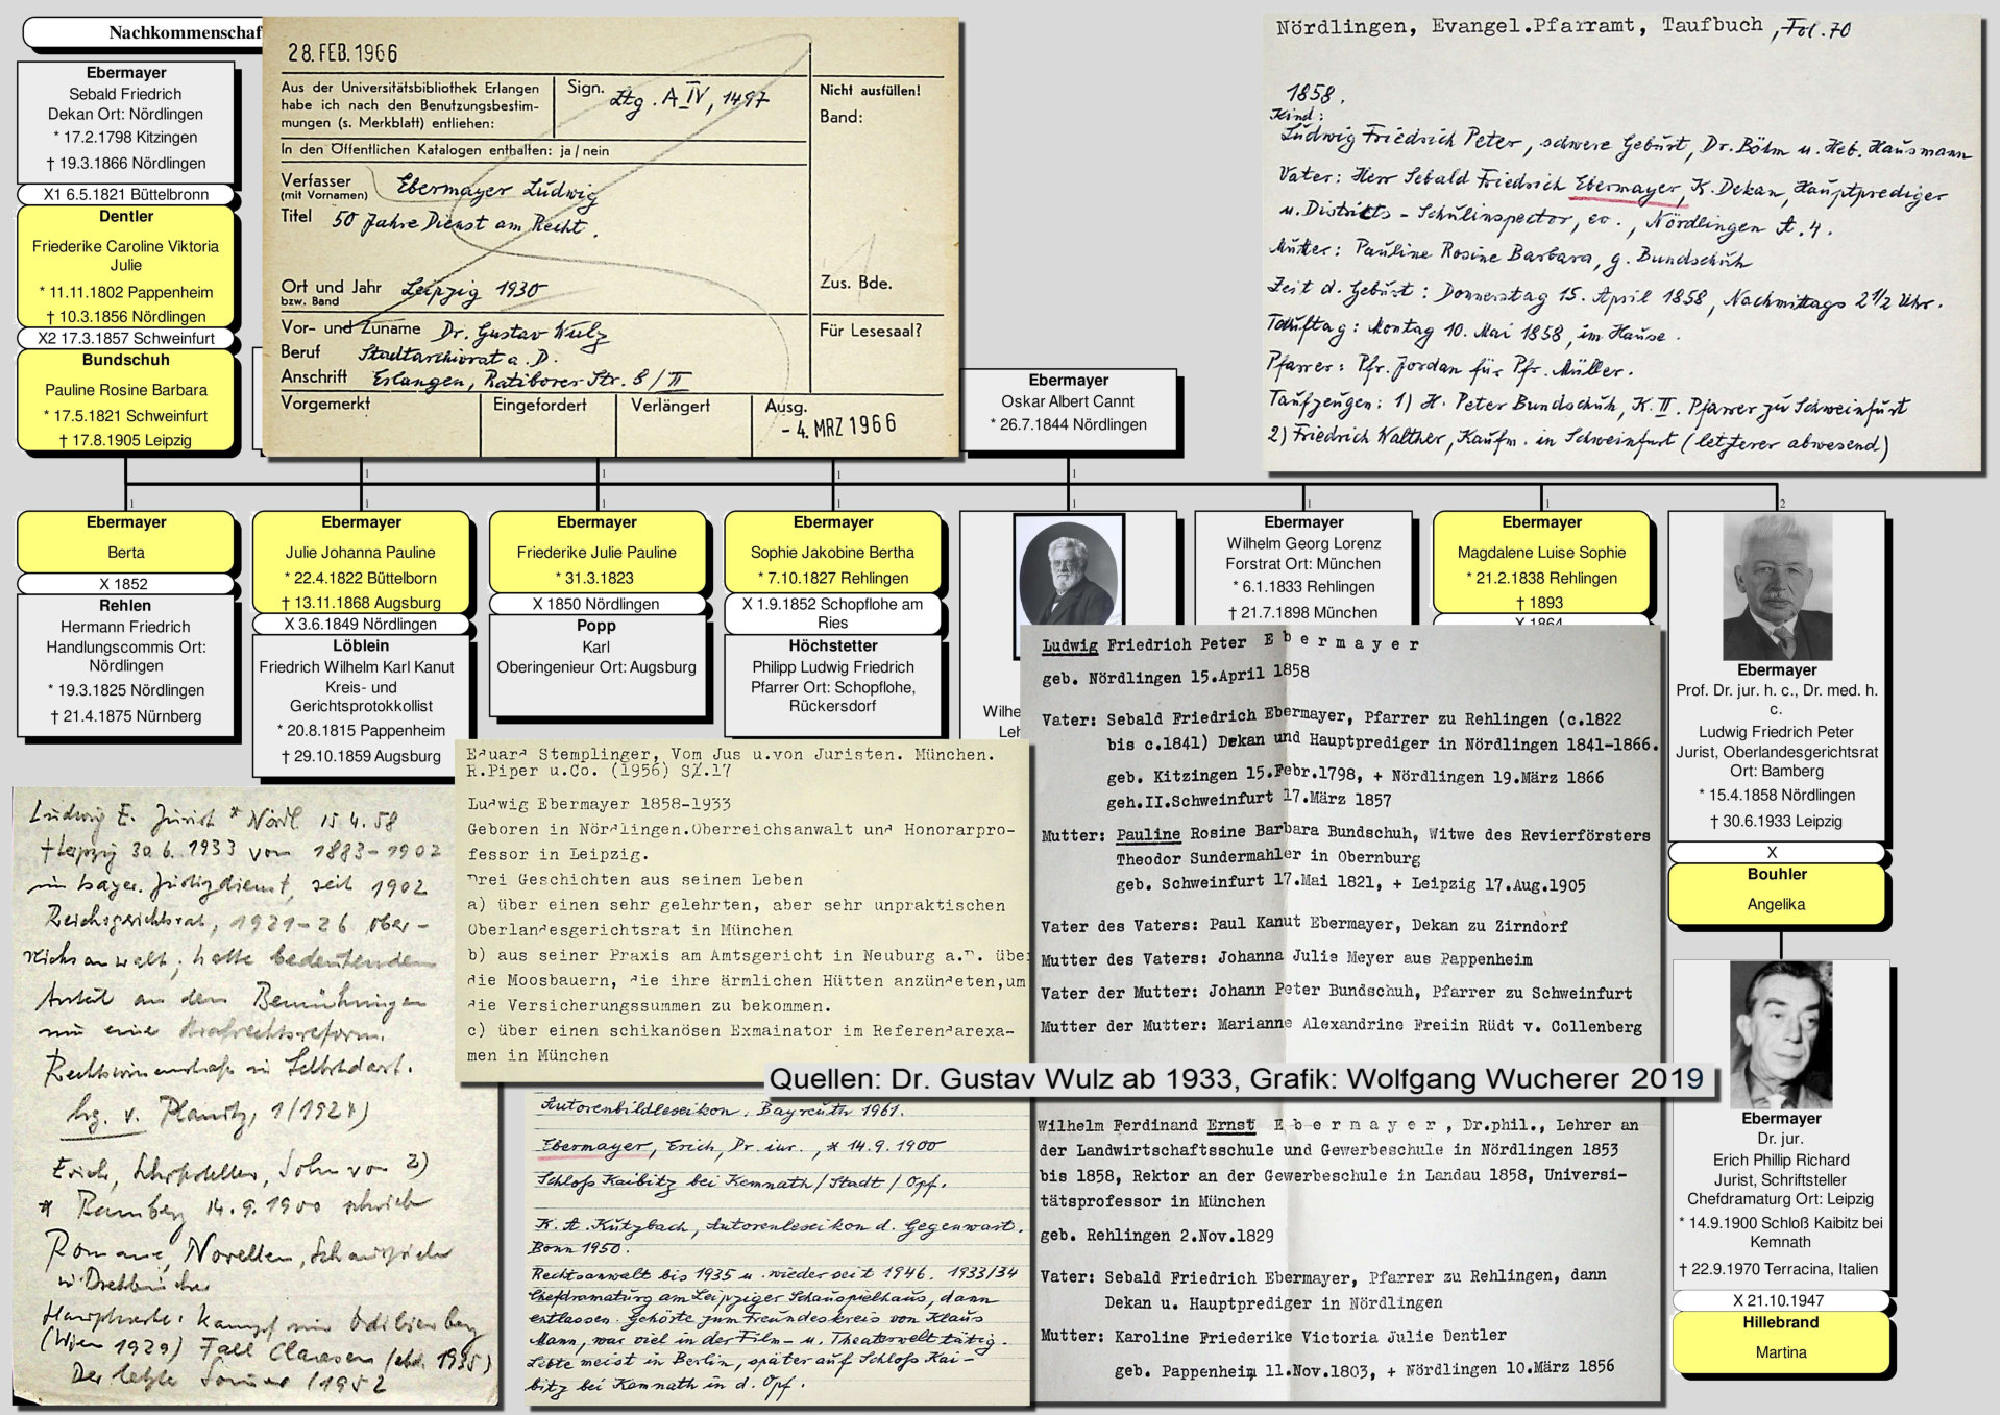 Nachkommenschaf
Ebermayer
Sebald Friedrich
Dekan Ort: Nördlingen
* 17.2.1798 Kitzingen
† 19.3.1866 Nördlingen
X1 6.5.1821 Büttelbronn
Dentler
Friederike Caroline Viktoria
Julie
* 11.11.1802 Pappenheim
† 10.3.1856 Nördlingen
X2 17.3.1857 Schweinfurt
Bundschuh
Pauline Rosine Barbara
* 17.5.1821 Schweinfurt
† 17.8.1905 Leipzig
28. FEB. 1966
Aus der Universitätsbibliothek Erlangen
habe ich nach den Benutzungsbestim-
mungen (s. Merkblatt) entliehen:
Sign. Ztg. A IV, 1497
Nicht ausfüllen!
Band:
In den Öffentlichen Katalogen enthalten: ja / nein
Verfasser
(mit Vornamen)
Ebermayer Ludwig
Titel 50 Jahre Dienst am Recht.
Ort und Jahr Leipzig 1930
bzw. Band
Zus. Bde.
Vor- und Zuname Dr. Gustav Wulz
Für Lesesaal?
Beruf Stadtarchivrat a. D.
Anschrift Erlangen, Ratiborer Str. 8 / II
Vorgemerkt
Eingefordert
Verlängert
Ausg.
- 4. MRZ 1966
Nördlingen, Evangel.Pfarramt, Taufbuch, Fol. 70
1858.
Kind:
Ludwig Friedrich Peter, schwere Geburt, Dr. Böhm u. Heb. Hausmann
Vater: Herr Sebald Friedrich Ebermayer, K. Dekan, Hauptprediger
u. Districts-Schulinspector, ev., Nördlingen A. 4.
Mutter: Pauline Rosine Barbara, g. Bundschuh
Zeit d. Geburt: Donnerstag 15. April 1858, Nachmittags 2 1/2 Uhr.
Tauftag: Montag 10. Mai 1858, im Hause.
Pfarrer: Pfr. Jordan für Pfr. Müller.
Taufzeugen: 1) H. Peter Bundschuh, K. II. Pfarrer zu Schweinfurt
2) Friedrich Walther, Kaufm. in Schweinfurt (letzterer abwesend)
Ebermayer
Oskar Albert Cannt
* 26.7.1844 Nördlingen
1
1
1
1
1
1
1
1
1
1
2
Ebermayer
Berta
X 1852
Rehlen
Hermann Friedrich
Handlungscommis Ort:
Nördlingen
* 19.3.1825 Nördlingen
† 21.4.1875 Nürnberg
Ebermayer
Julie Johanna Pauline
* 22.4.1822 Büttelborn
† 13.11.1868 Augsburg
X 3.6.1849 Nördlingen
Löblein
Friedrich Wilhelm Karl Kanut
Kreis- und
Gerichtsprotokkollist
* 20.8.1815 Pappenheim
† 29.10.1859 Augsburg
Ebermayer
Friederike Julie Pauline
* 31.3.1823
X 1850 Nördlingen
Popp
Karl
Oberingenieur Ort: Augsburg
Ebermayer
Sophie Jakobine Bertha
* 7.10.1827 Rehlingen
X 1.9.1852 Schopflohe am
Ries
Höchstetter
Philipp Ludwig Friedrich
Pfarrer Ort: Schopflohe,
Rückersdorf
Wilhe
Leh
Ebermayer
Wilhelm Georg Lorenz
Forstrat Ort: München
* 6.1.1833 Rehlingen
† 21.7.1898 München
Ebermayer
Magdalene Luise Sophie
* 21.2.1838 Rehlingen
† 1893
X 1864
Ebermayer
Prof. Dr. jur. h. c., Dr. med. h.
c.
Ludwig Friedrich Peter
Jurist, Oberlandesgerichtsrat
Ort: Bamberg
* 15.4.1858 Nördlingen
† 30.6.1933 Leipzig
X
Bouhler
Angelika
Ebermayer
Dr. jur.
Erich Phillip Richard
Jurist, Schriftsteller
Chefdramaturg Ort: Leipzig
* 14.9.1900 Schloß Kaibitz bei
Kemnath
† 22.9.1970 Terracina, Italien
X 21.10.1947
Hillebrand
Martina
Ludwig Friedrich Peter Ebermayer
geb. Nördlingen 15.April 1858
Vater: Sebald Friedrich Ebermayer, Pfarrer zu Rehlingen (c.1822
bis c.1841) Dekan und Hauptprediger in Nördlingen 1841-1866.
geb. Kitzingen 15.Febr.1798, + Nördlingen 19.März 1866
geh.II.Schweinfurt 17.März 1857
Mutter: Pauline Rosine Barbara Bundschuh, Witwe des Revierförsters
Theodor Sundermahler in Obernburg
geb. Schweinfurt 17.Mai 1821, + Leipzig 17.Aug.1905
Vater des Vaters: Paul Kanut Ebermayer, Dekan zu Zirndorf
Mutter des Vaters: Johanna Julie Meyer aus Pappenheim
Vater der Mutter: Johann Peter Bundschuh, Pfarrer zu Schweinfurt
Mutter der Mutter: Marianne Alexandrine Freiin Rüdt v. Collenberg
Eduard Stemplinger, Vom Jus u.von Juristen. München.
R.Piper u.Co. (1956) S.17
Ludwig Ebermayer 1858-1933
Geboren in Nördlingen.Oberreichsanwalt und Honorarpro-
fessor in Leipzig.
Drei Geschichten aus seinem Leben
a) über einen sehr gelehrten, aber sehr unpraktischen
Oberlandesgerichtsrat in München
b) aus seiner Praxis am Amtsgericht in Neuburg a.D. über
die Moosbauern, die ihre ärmlichen Hütten anzündeten,um
die Versicherungssummen zu bekommen.
c) über einen schikanösen Exmainator im Referendarexa-
men in München
Ludwig E. Jurist * Nördl 15.4.58
† Leipzig 30.6.1933 von 1883-1902
im bayer. Justizdienst, seit 1902
Reichsgerichtsrat, 1921-26 Ober-
reichsanwalt; hatte bedeutenden
Anteil an den Bemühungen
um eine Strafrechtsreform.
Rechtswissenschaft in Selbstdarst.
hg. v. Planitz, 1 (1924)
Erich, Schriftsteller, Sohn von 2)
* Bamberg 14.9.1900 schrieb
Romane, Novellen, Schauspiele
u. Drehbücher
Hauptwerke: Kampf um Odilienberg
(Wien 1929) Fall Claasen (ebd. 1935)
Der letzte Sommer (1952
Quellen: Dr. Gustav Wulz ab 1933, Grafik: Wolfgang Wucherer 2019
Autorenbildlexikon, Bayreuth 1961.
Ebermayer, Erich, Dr. iur., * 14.9.1900
Schloß Kaibitz bei Kemnath / Stadt / Opf.
K. A. Kutzbach, Autorenlexikon d. Gegenwart.
Bonn 1950.
Rechtsanwalt bis 1935 u. wieder seit 1946. 1933/34
Chefdramaturg am Leipziger Schauspielhaus, dann
entlassen. Gehörte zum Freundeskreis von Klaus
Mann, war viel in der Film- u. Theaterwelt tätig.
Lebte meist in Berlin, später auf Schloß Kai-
bitz bei Kemnath in d. Opf.
Wilhelm Ferdinand Ernst Ebermayer, Dr.phil., Lehrer an
der Landwirtschaftsschule und Gewerbeschule in Nördlingen 1853
bis 1858, Rektor an der Gewerbeschule in Landau 1858, Universi-
tätsprofessor in München
geb. Rehlingen 2.Nov.1829
Vater: Sebald Friedrich Ebermayer, Pfarrer zu Rehlingen, dann
Dekan u. Hauptprediger in Nördlingen
Mutter: Karoline Friederike Victoria Julie Dentler
geb. Pappenheim 11.Nov.1803, + Nördlingen 10.März 1856